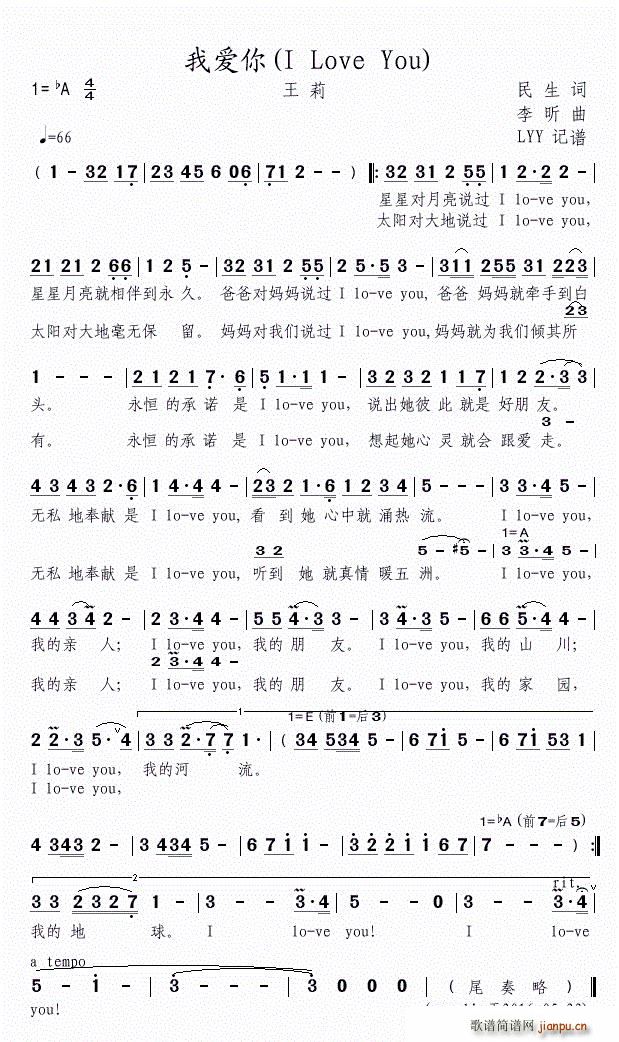 我爱你(I Love You)
1= ♭A 4/4 王 莉 民 生 词
李 昕 曲
♩=66 LYY 记谱
( 1 - 32 17 | 23 45 6 06 | 71 2 - - ) ‖: 32 31 2 55 | 1 2·2 2 - |
星星对月亮说过 I lo-ve you,
太阳对大地说过 I lo-ve you,
21 21 2 66 | 1 2 5 - | 32 31 2 55 | 2 5·5 2 - | 311 255 31 223 |
星星月亮就相伴到永久。 爸爸对妈妈说过 I lo-ve you, 爸爸 妈妈就牵手到白
23
太阳对大地毫无保 留。 妈妈对我们说过 I lo-ve you,妈妈就为我们倾其所
1 - - - | 2 1 2 1 7· 6 | 5 1·1 1 - | 3 2 3 2 1 1 7 | 1 2 2·3 3 |
头。 永恒 的承诺 是 I lo-ve you, 说出她彼此就是好朋友。
3 -
有。 永恒 的承诺 是 I lo-ve you, 想起她心灵就会跟爱走。
4 3 4 3 2 ·6 | 1 4·4 4 - | 23 2 1·6 1 2 3 4 | 5 - - 3 | 3 3·4 5 - |
无私 地奉献 是 I lo-ve you, 看 到 她 心中就 涌热 流。 I lo-ve you,
1=A
3 2 5 - #5 - 3 3·4 5 -
无私 地奉献 是 I lo-ve you, 听到 她 就真情 暖五 洲。 I lo-ve you,
4 4 3 4 2 - | 2 3·4 4 - | 5 5 4·3 3 - | 3 4·5 6 - | 6 6 5·4 4 - |
我的亲 人; I lo-ve you, 我的 朋 友。 I lo-ve you, 我的 山 川;
2 3·4 4 -
我的亲 人; I lo-ve you, 我的 朋 友。 I lo-ve you, 我的 家 园,
1 1=E (前1=后3)
2 2·3 5·4 | 3 3 2·7 7 1· | ( 34 534 5 - | 6 71 5 - | 6 71 53 1 |
I lo-ve you, 我的河 流。
I lo-ve you,
1=♭A (前7=后5)
4 343 2 - | 3 343 5 - | 6 71 1 1 | 3 2 2 1 1 67 | 7 - - - ) :‖
2 rit.
3 3 2 3 2 7 | 1 - - 1 | 3·4 5 - | 1 - - 1 | 3·4
我的 地 球。 I lo-ve you! I lo-ve
a tempo
5 - 1 - | 3 - - - | 3 0 0 0 | ( 尾 奏 略 )
you!
歌谱简谱网 jianpu.cn